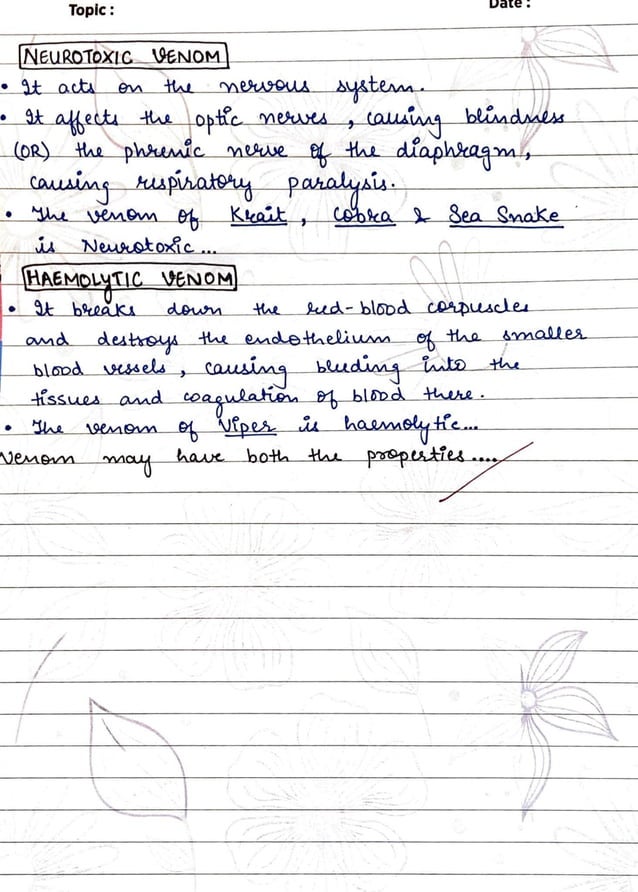 Topic :
Date :
NEUROTOXIC VENOM
• It acts on the nervous system.
• It affects the optic nerves, causing blindness
(OR) the phrenic nerve of the diaphragm,
causing respiratory paralysis.
• The venom of Krait, Cobra & Sea Snake
is Neurotoxic...
HAEMOLYTIC VENOM
• It breaks down the red-blood corpuscles
and destroys the endothelium of the smaller
blood vessels, causing bleeding into the
tissues and coagulation of blood there.
• The venom of Viper is haemolytic...
Venom may have both the properties....